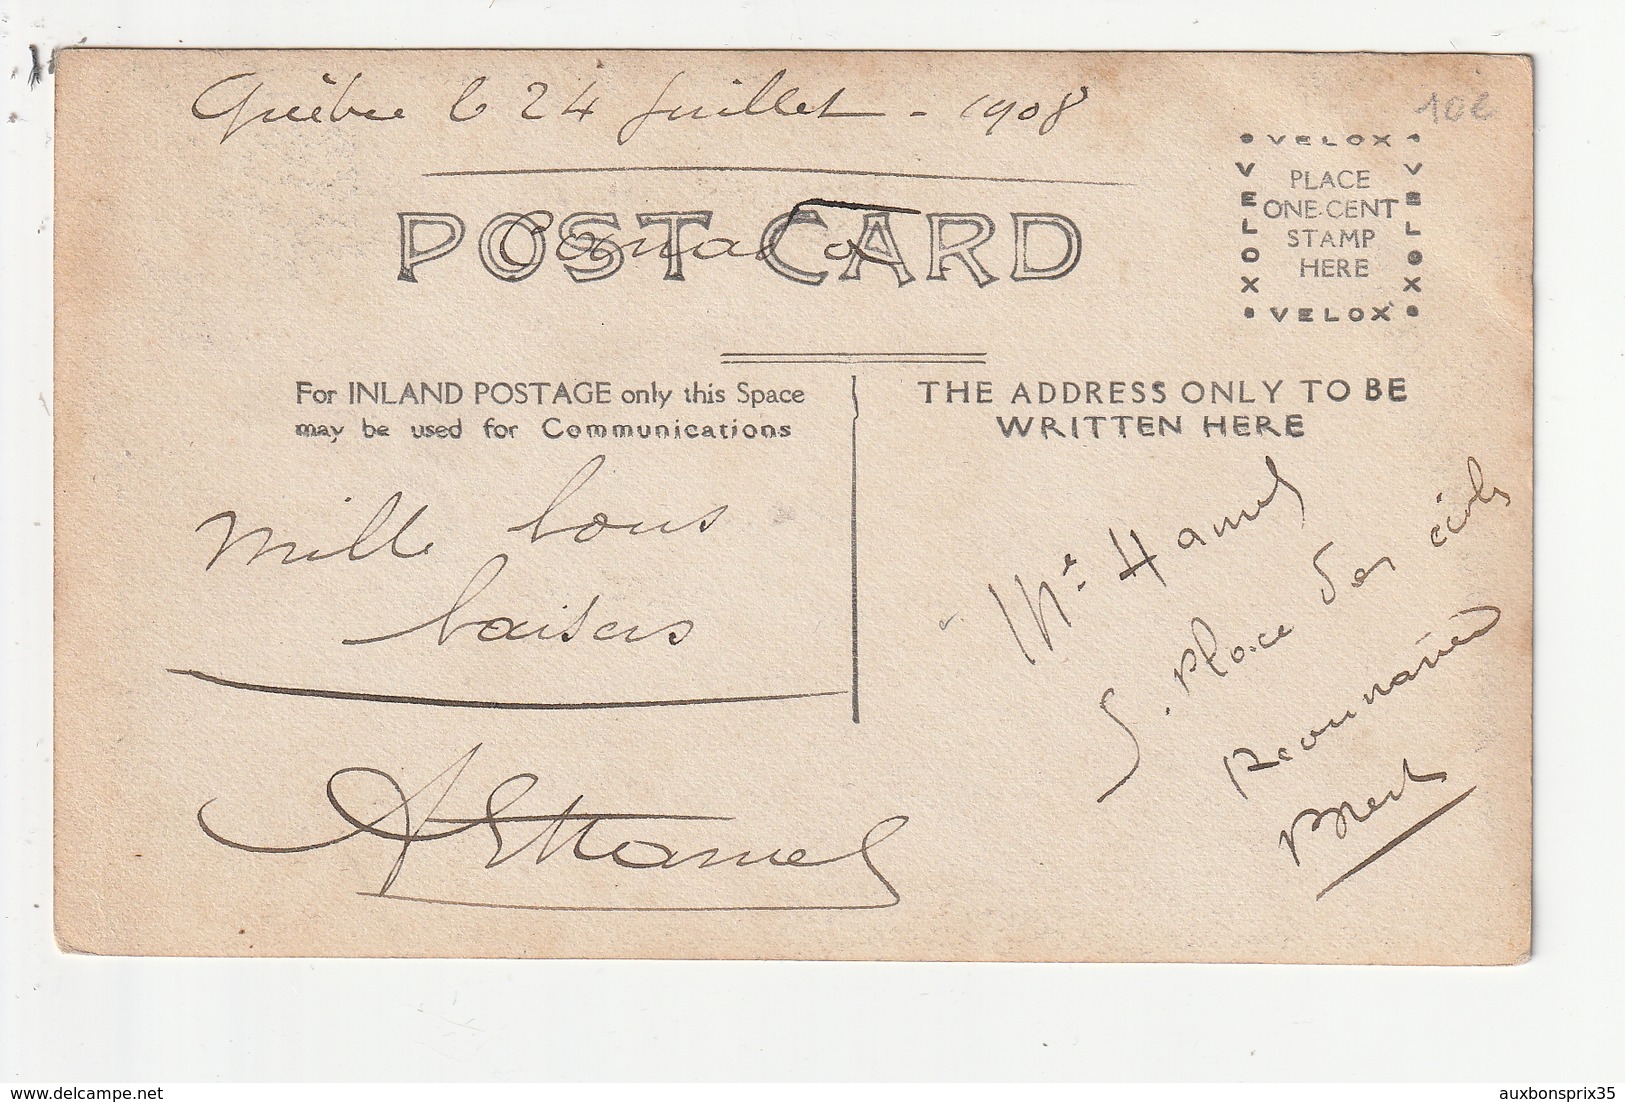 Québec le 24 Juillet - 1908
10€
POST CARD
Canada
VELOX
VELOX
PLACE
ONE-CENT
STAMP
HERE
VELOX
VELOX
For INLAND POSTAGE only this Space
may be used for Communications
THE ADDRESS ONLY TO BE
WRITTEN HERE
Mille bons
baisers
Hamel
Me Hamel
5. Place des écoles
Recouvrance
Brest
www.delcampe.net
auxbonsprix35